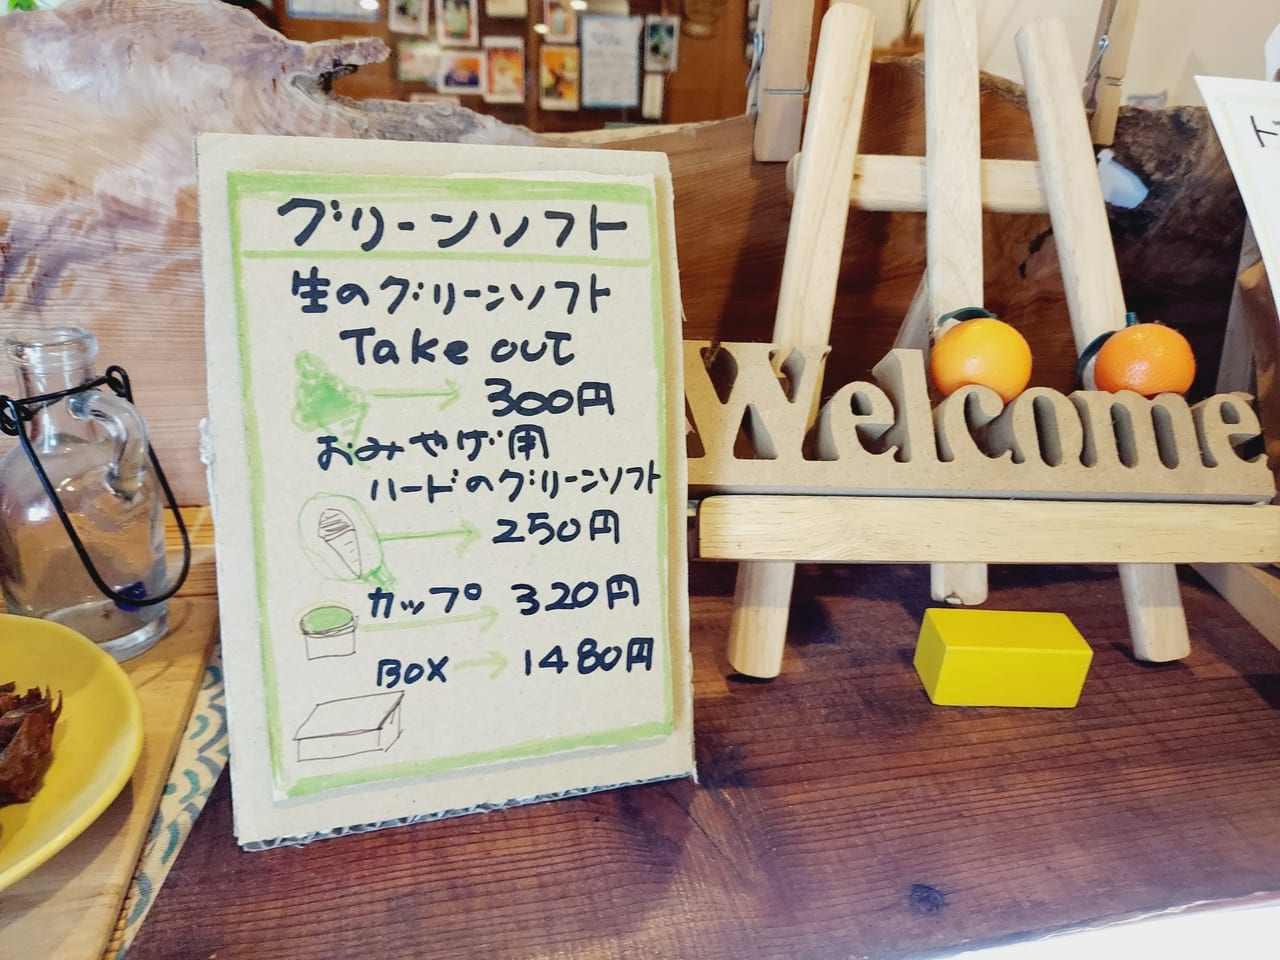 グリーンソフト
生のグリーンソフト
Take out
300円
おみやげ用
ハードのグリーンソフト
250円
カップ 320円
BOX 1480円
Welcome